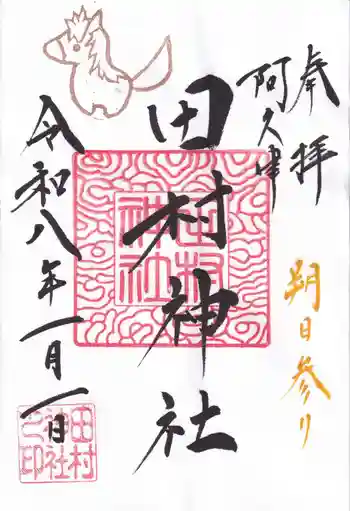 奉拝
阿久津
朔日参り
田村神社
田村神社
令和八年一月一日
田村
神社
之印